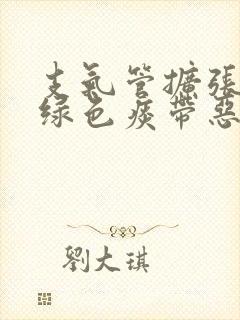 支氣管擴張
綠色痰帶惡
劉大琪